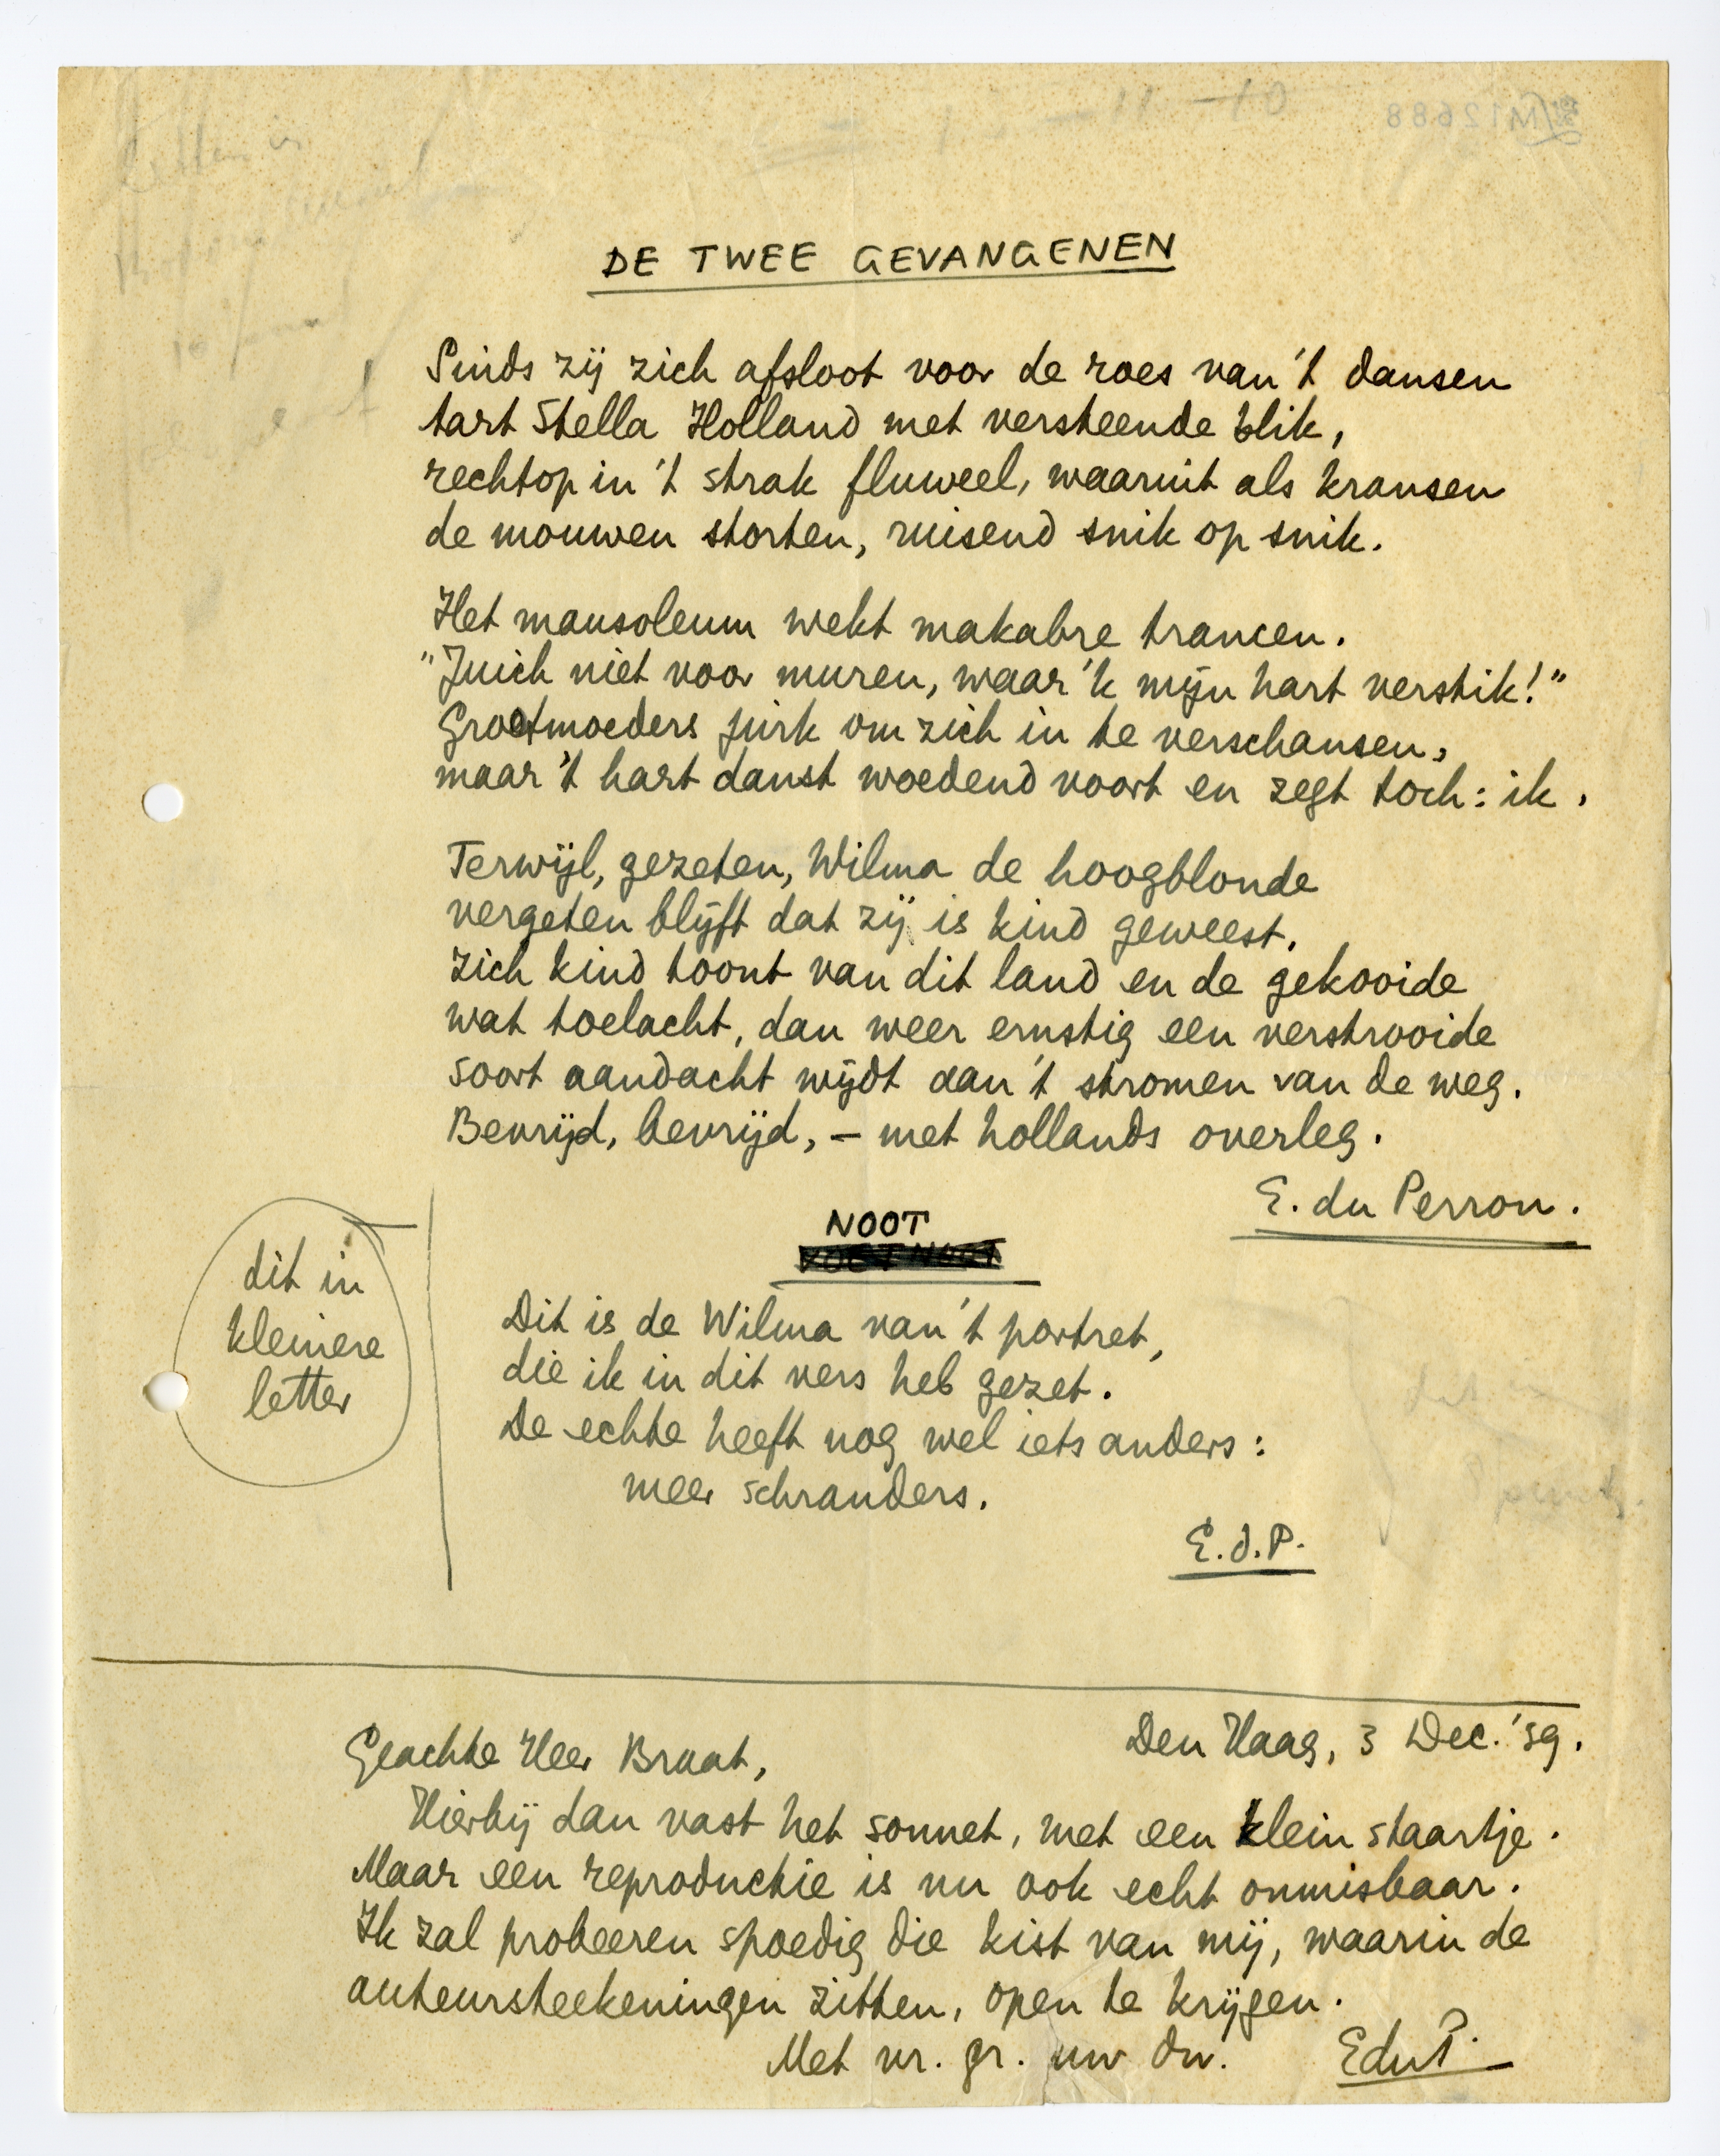 DE TWEE GEVANGENEN
Sinds zij zich afsloot voor de roes van 't dansen
tart Stella Holland met versteende blik,
rechtop in 't strak fluweel, waaruit als kransen
de mouwen storten, ruisend snik op snik.
Het mausoleum wekt makabre trancen.
"Juich niet voor muren, waar 'k mijn hart verstik!"
Grootmoeders jurk om zich in te verschansen,
maar 't hart danst woedend voort en zegt toch: ik.
Terwijl, gezeten, Wilma de hoogblonde
vergeten blijft dat zij is kind geweest,
zich kind toont van dit land en de gekooide
wat toelacht, dan weer ernstig een verstrooide
soort aandacht wijdt aan 't stromen van de weg.
Bevrijd, bevrijd, – met hollands overleg.
E. du Perron.
NOOT
VOETNOOT
dit in
kleinere
letter
Dit is de Wilma van 't portret,
die ik in dit vers heb gezet.
De echte heeft nog wel iets anders:
meer schranders.
E.d.P.
Den Haag, 3 Dec. '39.
Geachte Heer Braat,
Hierbij dan vast het sonnet, met een klein staartje.
Maar een reproductie is nu ook echt onmisbaar.
Ik zal probeeren spoedig die kist van mij, waarin de
auteursteekeningen zitten, open te krijgen.
Met vr. gr. uw dw. EduP.